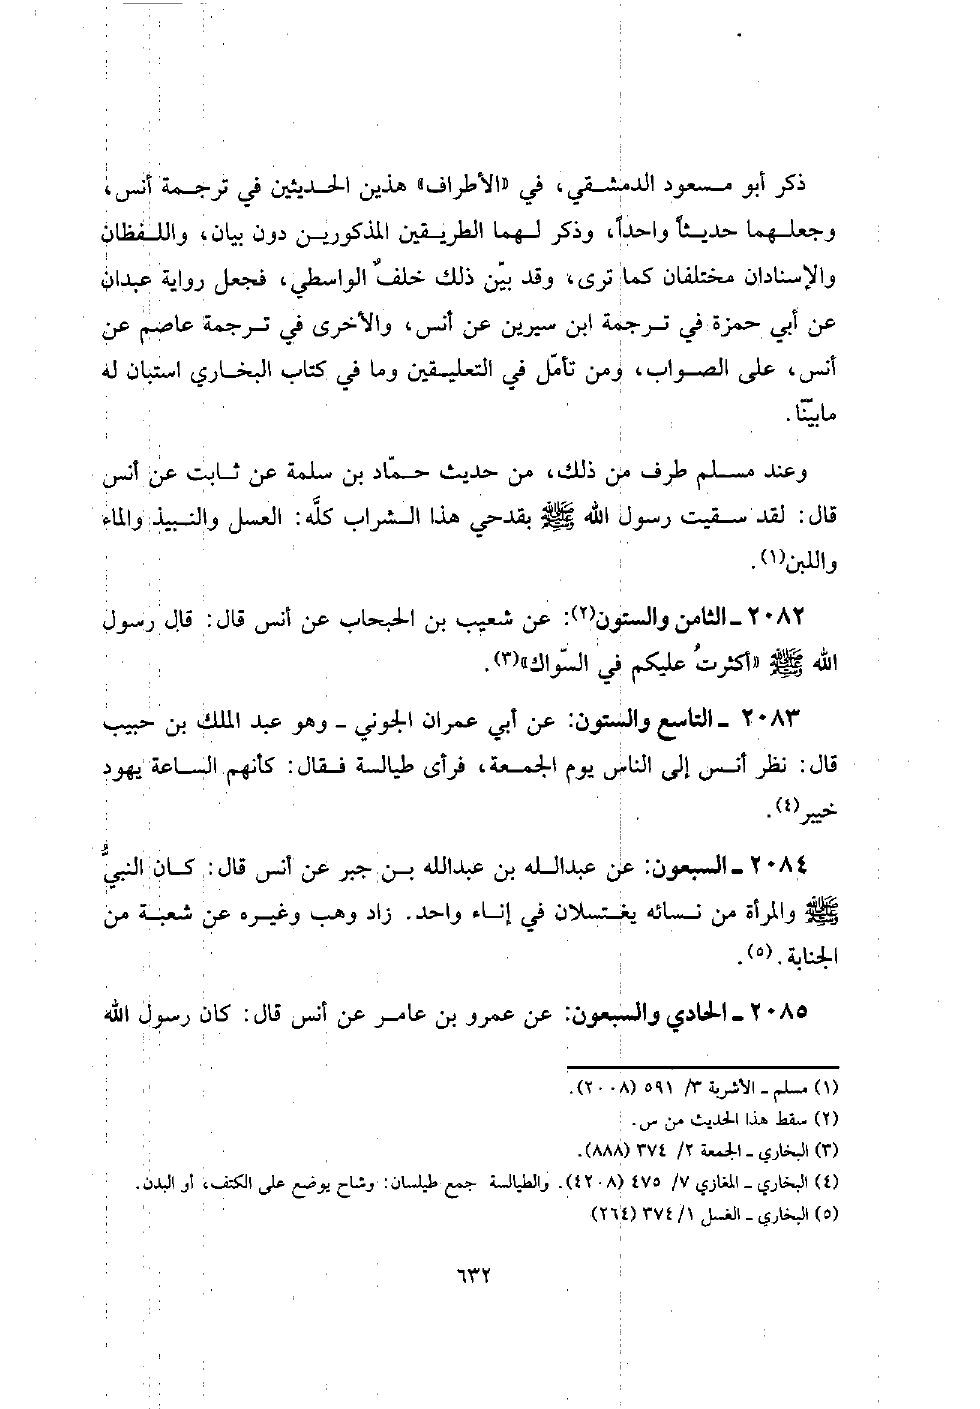 ذكر أبو مسعود الدمشقي، في «الأطراف» هذين الحديثين في ترجمة أنس،
وجعلهما حديثاً واحداً، وذكر لهما الطريقين المذكورين دون بيان، واللفظان
والإسنادان مختلفان كما ترى، وقد بيّن ذلك خلفٌ الواسطي، فجعل رواية عبدان
عن أبي حمزة في ترجمة ابن سيرين عن أنس، والأخرى في ترجمة عاصم عن
أنس، على الصواب، ومن تأمّل في التعليقين وما في كتاب البخاري استبان له
مابيّنّا.
وعند مسلم طرف من ذلك، من حديث حمّاد بن سلمة عن ثابت عن أنس
قال: لقد سقيت رسول الله ﷺ بقدحي هذا الشراب كلَّه: العسل والنبيذ والماء
واللبن(١).
٢٠٨٢ ـ الثامن والستون(٢): عن شعيب بن الحبحاب عن أنس قال: قال رسول
الله ﷺ «أكثرتُ عليكم في السّواك»(٣).
٢٠٨٣ ـ التاسع والستون: عن أبي عمران الجوني ـ وهو عبد الملك بن حبيب
قال: نظر أنس إلى الناس يوم الجمعة، فرأى طيالسة فقال: كأنهم الساعة يهود
خيبر(٤).
٢٠٨٤ ـ السبعون: عن عبدالله بن عبدالله بن جبر عن أنس قال: كان النبيُّ
ﷺ والمرأة من نسائه يغتسلان في إناء واحد. زاد وهب وغيره عن شعبة من
الجنابة.(٥).
٢٠٨٥ ـ الحادي والسبعون: عن عمرو بن عامر عن أنس قال: كان رسول الله
(١) مسلم ـ الأشربة ٣/ ٥٩١ (٢٠٠٨).
(٢) سقط هذا الحديث من س.
(٣) البخاري ـ الجمعة ٢/ ٣٧٤ (٨٨٨).
(٤) البخاري ـ المغازي ٧/ ٤٧٥ (٤٢٠٨). والطيالسة جمع طيلسان: وشاح يوضع على الكتف، أو البدن.
(٥) البخاري ـ الغسل ١/ ٣٧٤ (٢٦٤)
٦٣٢